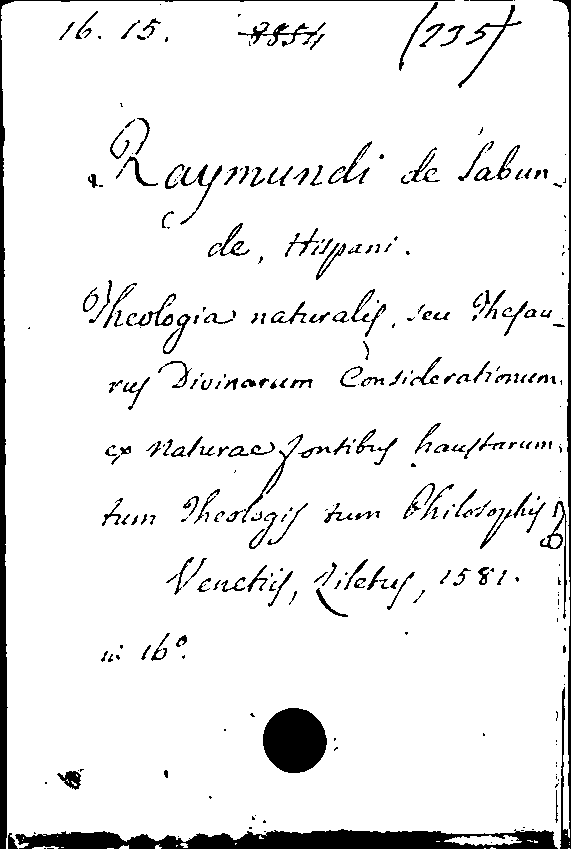 16. 15. 8854 (235)
Raymundi de Sabun-
de, Hispani.
Theologia naturalis, seu Thesau-
rus Divinarum Considerationum
ex Naturae fontibus haustarum
tum Theologis tum Philosophis
Venetiis, Ziletus, 1581.
in 16º.